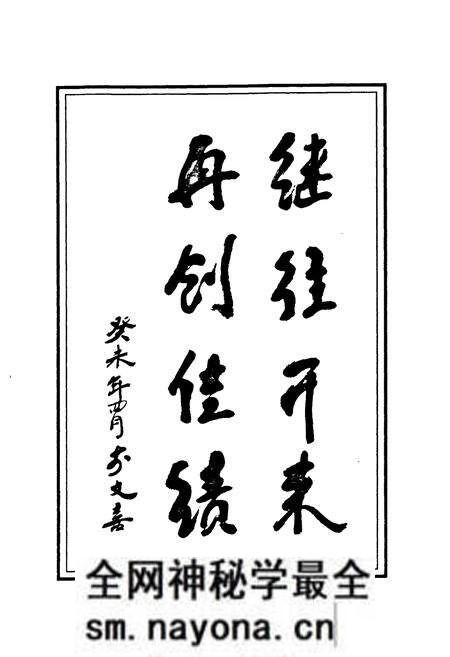 继往开来
再创佳绩
癸未年四月 文喜
全网神秘学最全
sm.nayona.cn